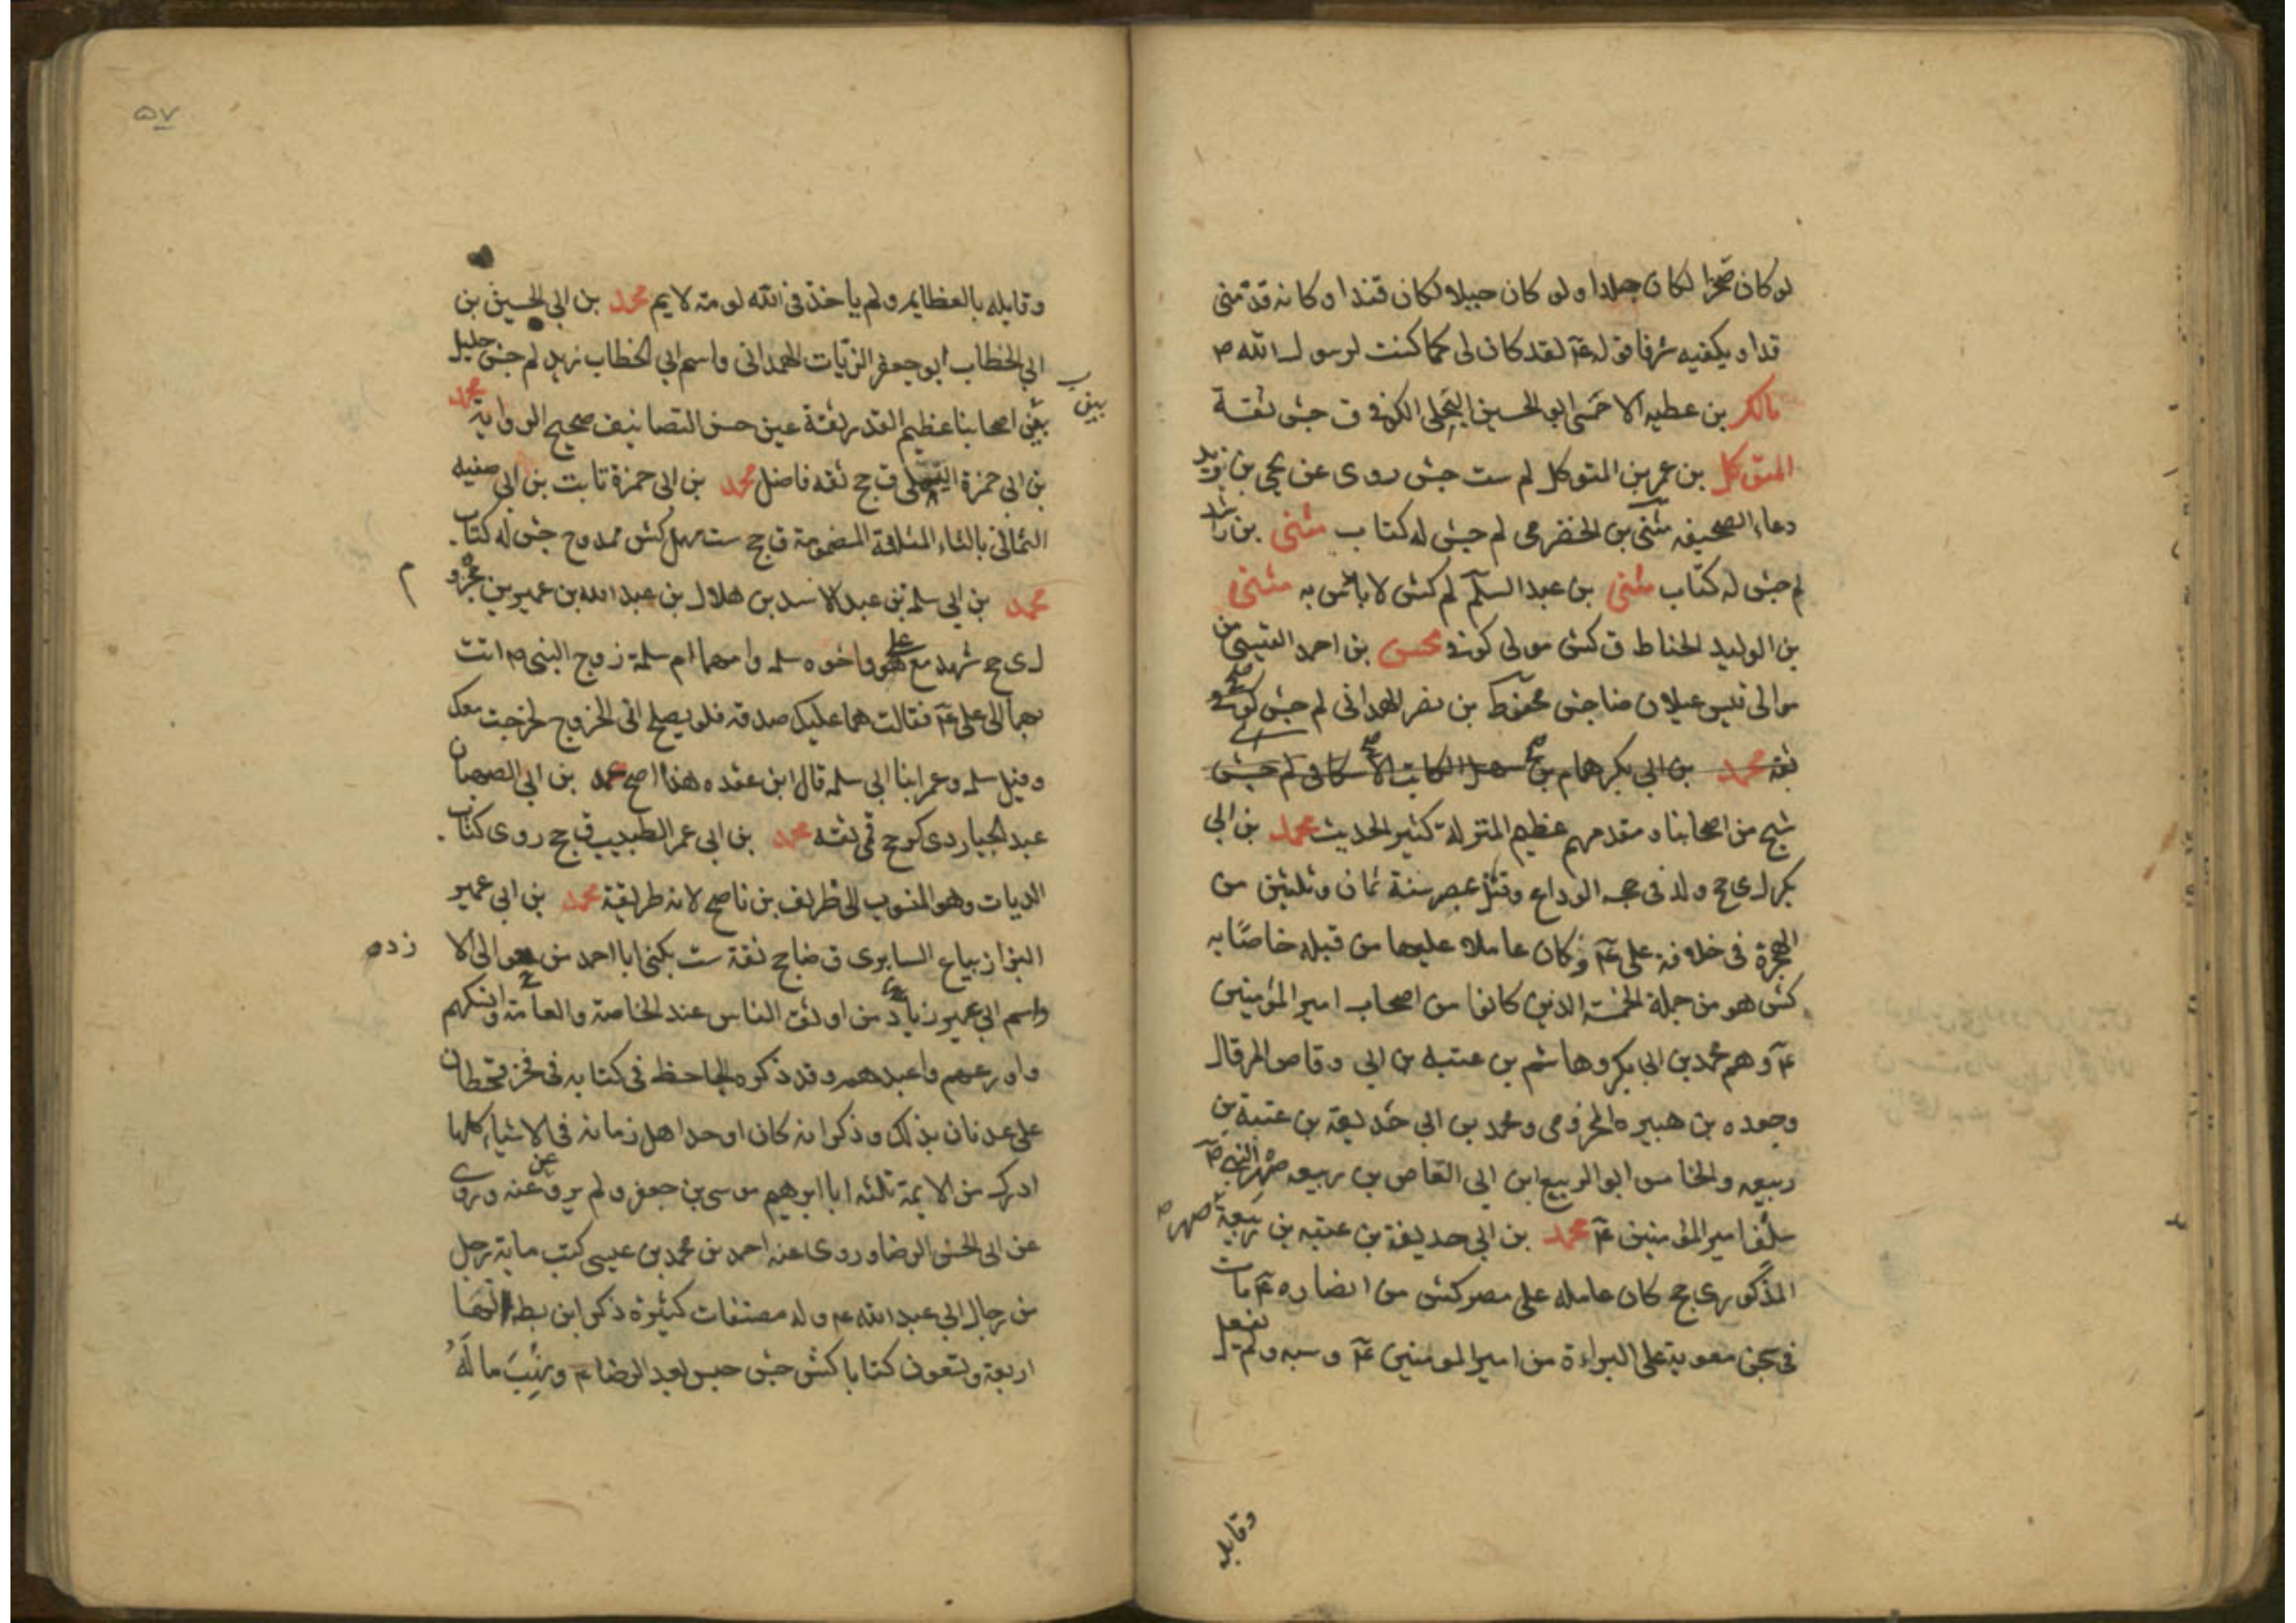 لو كان صخرا لكان صلدا ولو كان جبلا لكان فندا وكانه قد منى
قدا ويكفيه شرفا قوله عۤ لقد كان لى كما كنت لرسول الله ص
مالك بن عطيه الاحمسى ابو الحسين البجلى الكوفى ق جش ثقة
المتوكل بن عمر بن المتوكل لم ست جش روى عن يحيى بن زيد
دعاء الصحيفه مثنى بن الحضرمى لم جش له كتاب مثنى بن راشد
لم جش له كتاب مثنى بن عبد السلم لم كش لا باس به مثنى
بن الوليد الحناط ق كش مولى كوفى محسن بن احمد القيسى من
موالى قيس عيلان ضا جش محفوظ بن نصر الهمدانى لم جش كوفى
ثقه محمد بن ابى بكر همام بن سهل الكاتب الاسكافى لم جش
شيخ من اصحابنا ومتقدمهم عظيم المنزلة كثير الحديث محمد بن ابى
بكر لى جح ولد فى حجه الوداع وقتل بمصر سنة ثمان وثلثين من
الهجرة فى خلافة على عۤ وكان عاملا عليها من قبله خاصا به
كش هو من جملة الخمسة الذين كانوا من اصحاب امير المؤمنين
عۤ وهم محمد بن ابى بكر وهاشم بن عتبه بن ابى وقاص المرقال
وجعده بن هبيره المخزومى ومحمد بن ابى حذيفة بن عتبة بن
ربيعه والخامس ابو الربيع ابن ابى العاص بن ربيعه صهر النبى ص
سلف امير المؤمنين عۤ محمد بن ابى حذيفة بن عتبه بن ربيعة صهر ص
المذكور ى جح كان عامله على مصر كش من انصاره عۤ مات
فى سجن معوية على البراءة من امير المومنين عۤ وسبه ولم يفعل
وقابله
۵۷
وقابله بالعظايم ولم ياخذ فى الله لومة لايم محمد بن ابى الحسين بن
ابى الخطاب ابو جعفر الزيات الهمدانى واسم ابى الخطاب زيد لم جش جليل
من اصحابنا عظيم القدر ثقة عين حسن التصانيف صحيح الرواية محمد
بن ابى حمزة التيملى ق جح ثقه فاضل محمد بن ابى حمزة ثابت بن ابى صفيه
الثمالى بالثاء المثلثة المضمومة ق جح ست مهمل كش ممدوح جش له كتاب
محمد بن ابى سلمة بن عبد الاسد بن هلال بن عبد الله بن عمير بن مخزوم
ل ى جح شهد مع على هو واخوه سلمه وامهما ام سلمة زوج النبى ص اتت
بهما الى على عۤ فقالت هما عليك صدقه فلو يصلح لى الخروج لخرجت معك
وقيل سلمه وعمر ابنا ابى سلمه قال ابن عقده هذا اصح محمد بن ابى الصهبان
عبد الجبار دى كر جح قمى ثقه محمد بن ابى عمر الطبيب ق جح روى كتاب
الديات وهو المنسوب الى ظريف بن ناصح لانه طريقة محمد بن ابى عمير
البزاز بياع السابرى ق ضا جح ثقة ست يكنى ابا احمد من موالى الا
زده
واسم ابى عمير زياد من اوثق الناس عند الخاصة والعامة وانسكهم
واورعهم واعبدهم وقد ذكره الجاحظ فى كتابه فى فخر قحطان
على عدنان بذلك وذكر انه كان اوحد اهل زمانه فى الاشياء كلها
ادرك من الايمة ثلثه ابا ابرهيم موسى بن جعفر ولم يرو عنه وروى
عن ابى الحسن الرضا وروى عنه احمد بن محمد بن عيسى كتب ماية رجل
من رجال ابى عبد الله عۤ وله مصنفات كثيرة ذكر ابن بطه انها
اربعة وتسعون كتابا كش جش حبس بعد الرضا عۤ ونهب ماله